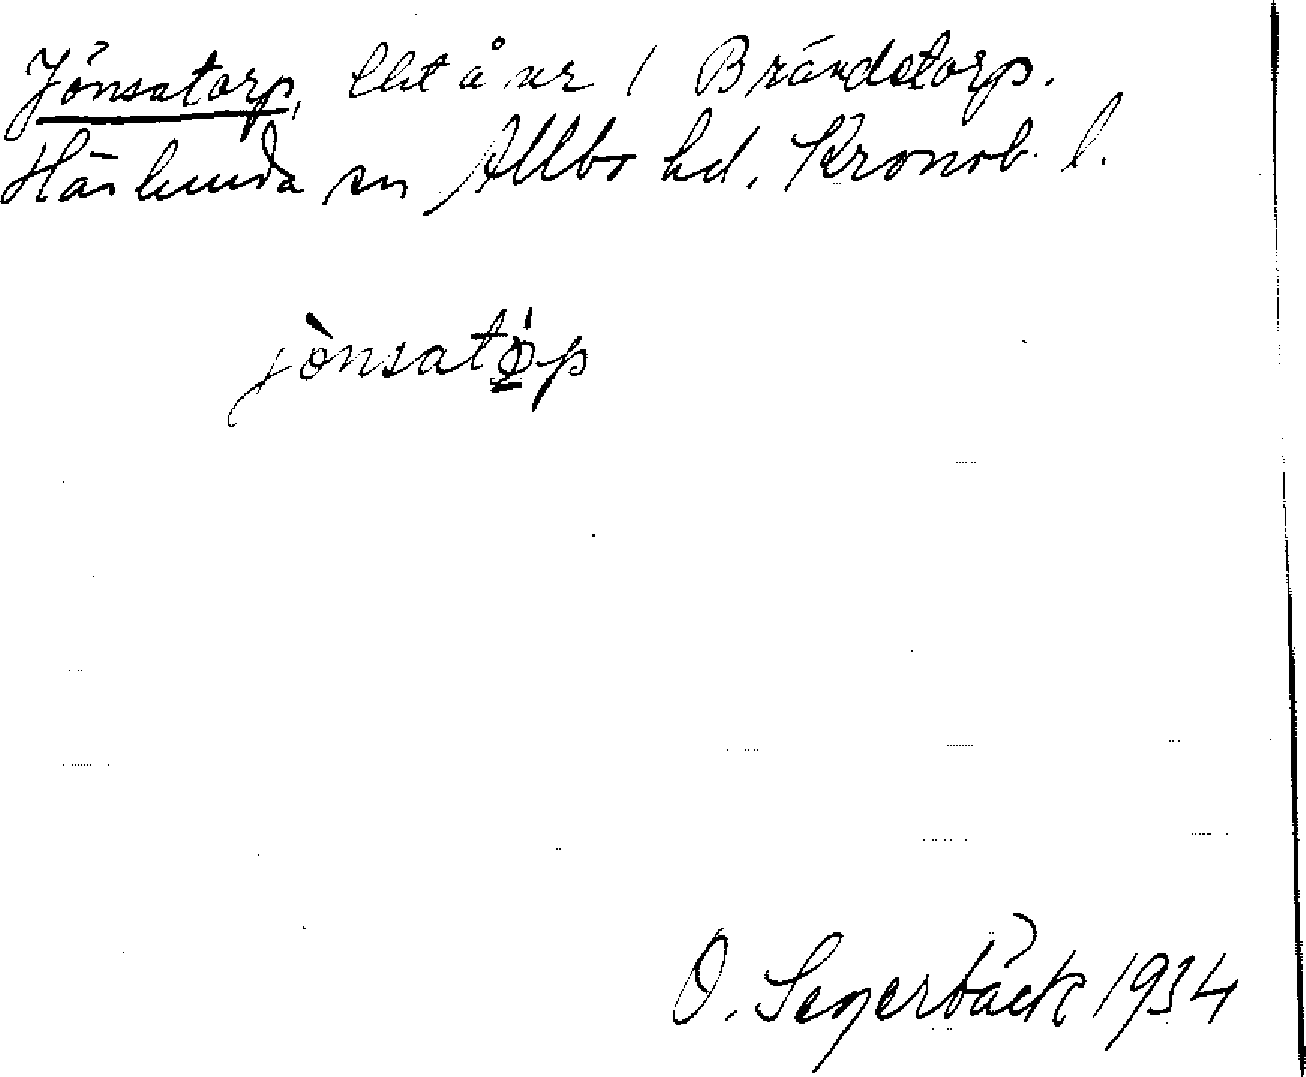 Jönsatorp, lht å nr 1 Brändetorp.
Härlunda sn Allbo hd. Kronob. l.
jònsatö́p
O. Segerbäck 1934